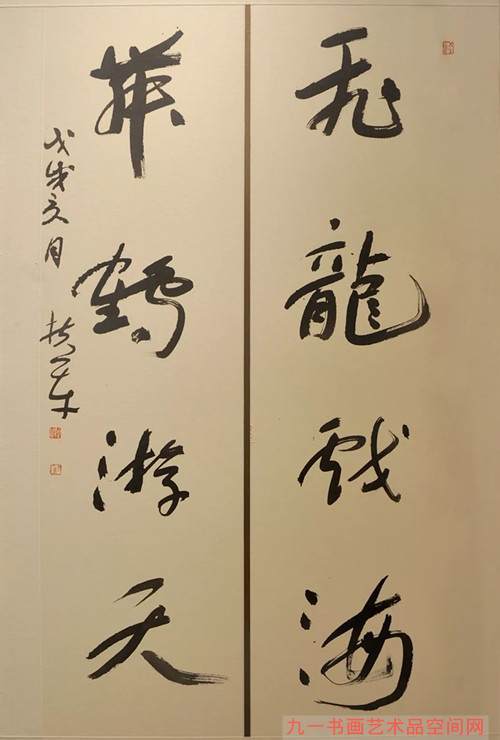 飛龍戲海
舞鶴游天
戊戌亥月
九一书画艺术品空间网